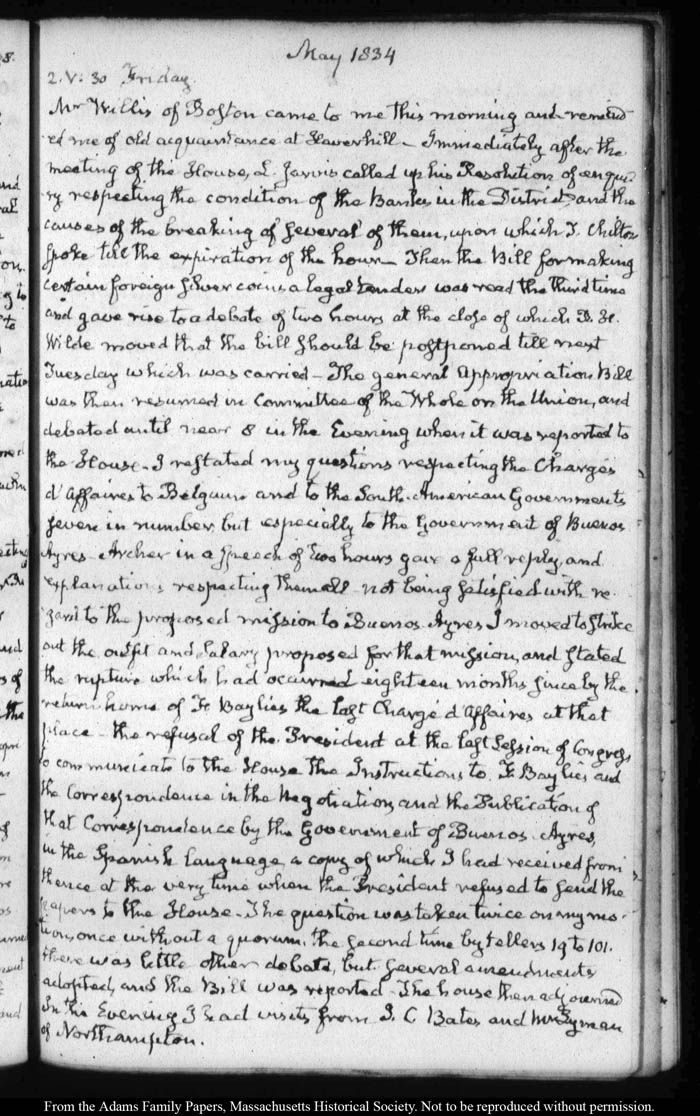 May 1834
2. V: 30 Friday.
Mr Willis of Boston came to me this morning and remind
ed me of old acquaintance at Haverhill - Immediately after the
meeting of the House, L. Jarvis called up his Resolution of enqui
ry respecting the condition of the Banks in the District and the
causes of the breaking of several of them, upon which T. Chilton
spoke till the expiration of the hour - Then the Bill for making
certain foreign silver coins a legal tender was read the third time
and gave rise to a debate of two hours at the close of which R. H.
Wilde moved that the bill should be postponed till next
Tuesday which was carried - The general Appropriation Bill
was then resumed in Committee of the Whole on the Union, and
debated until near 8 in the Evening when it was reported to
the House - I restated my questions respecting the Chargés
d'Affaires to Belgium and to the South-American Governments
seven in number, but especially to the Government of Buenos
Ayres - Archer in a speech of two hours gave a full reply, and
explanations respecting them all - not being satisfied with re-
gard to the proposed mission to Buenos-Ayres I moved to strike
out the outfit and salary proposed for that mission, and stated
the rupture which had occurred eighteen months since by the
return home of F. Baylies the last Chargé d'Affaires at that
place - the refusal of the President at the last Session of Congress
to communicate to the House the Instructions to F. Baylies and
the Correspondence in the Negotiation, and the Publication of
that Correspondence by the Government of Buenos-Ayres,
in the Spanish language, a copy of which I had received from
thence at the very time when the President refused to send the
papers to the House - The question was taken twice on my mo-
tion, once without a quorum, the second time by tellers 19 to 101.
there was little other debate, but several amendments
adopted, and the Bill was reported - The house then adjourned
In the Evening I had visits from I. C Bates and Mr Lyman
of Northampton.
From the Adams Family Papers, Massachusetts Historical Society. Not to be reproduced without permission.